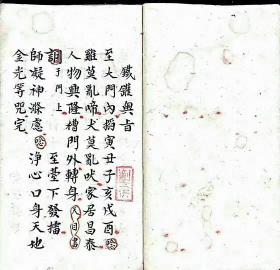 鐵鑵與旨
至大門內掐寅丑子亥戌酉唸
雞莫亂啼犬莫亂吠家居昌泰
人物興隆槽門外轉身
訓于門上 至臺下發擂
師凝神滌慮唸淨心口身天地
金光等咒完